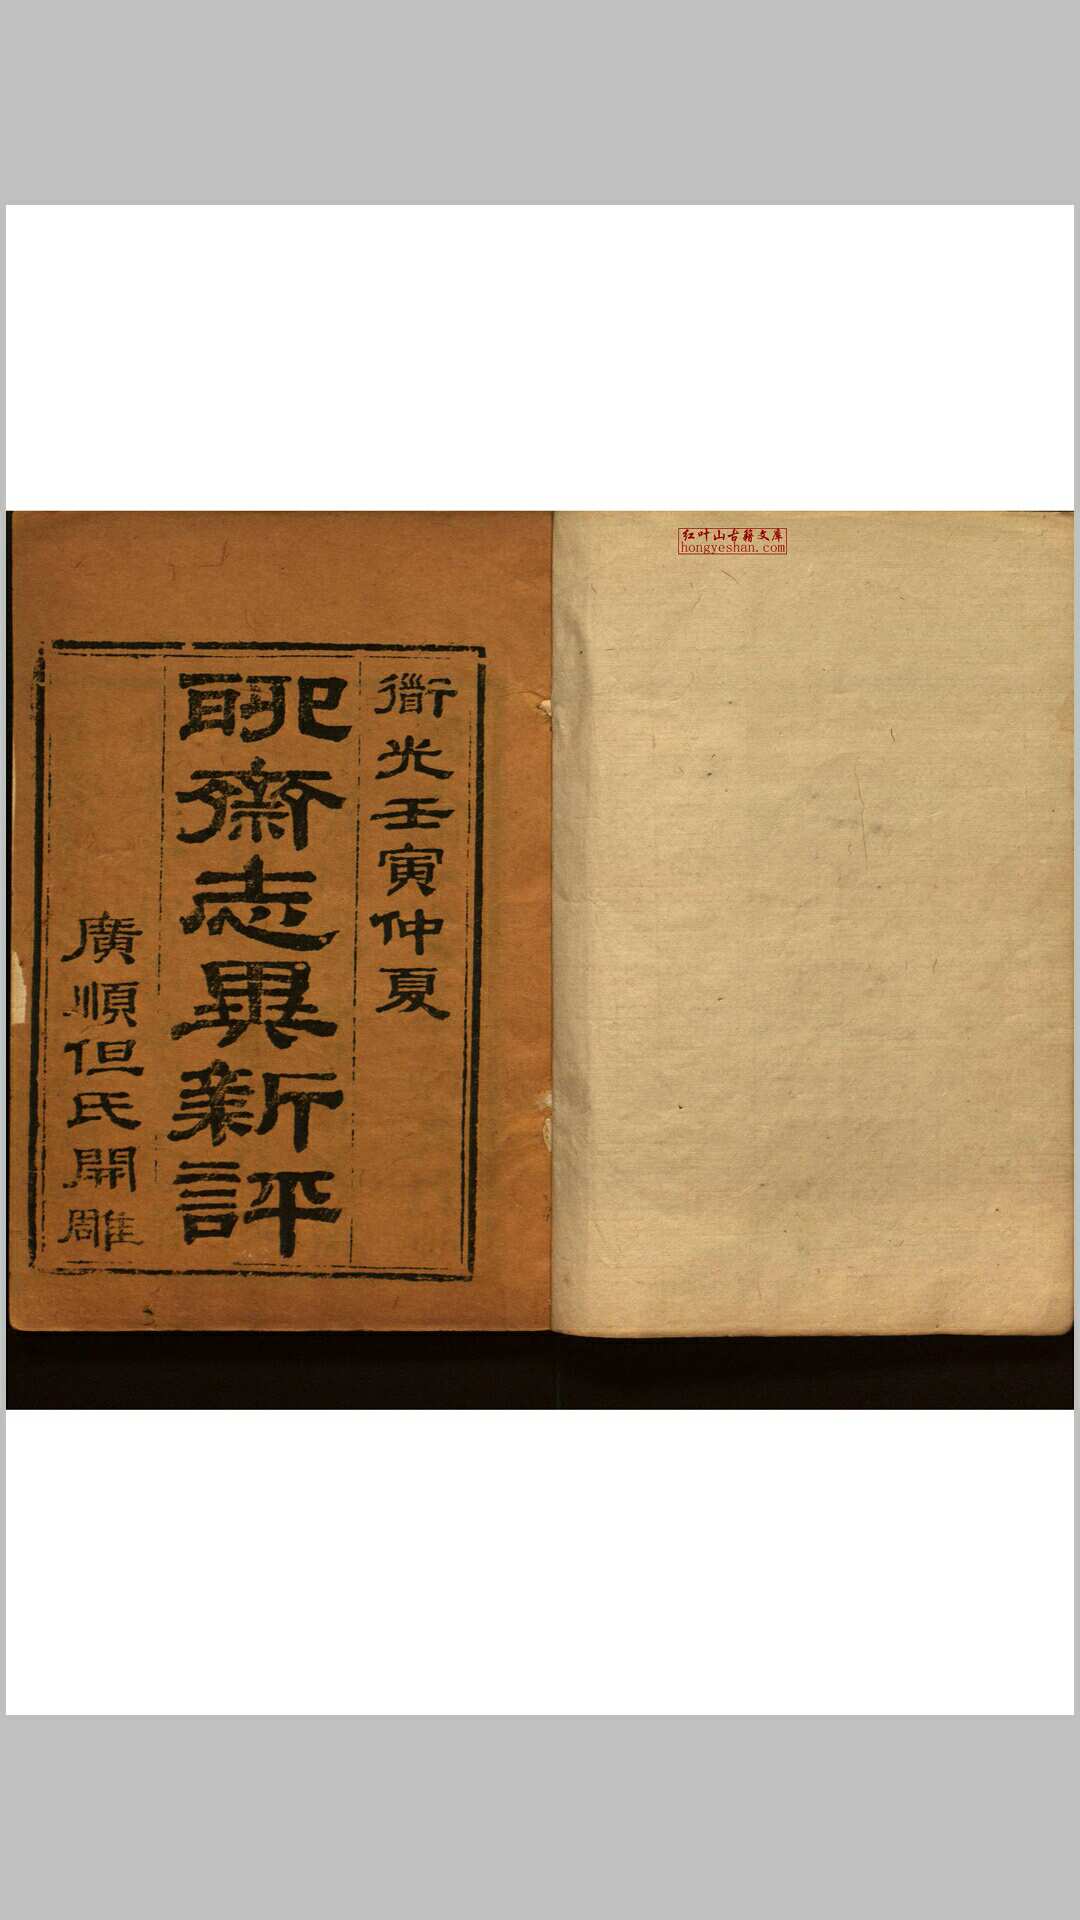 红叶山古籍文库
hongyeshan.com
衟光壬寅仲夏
聊齋志異新評
廣順但氏開雕